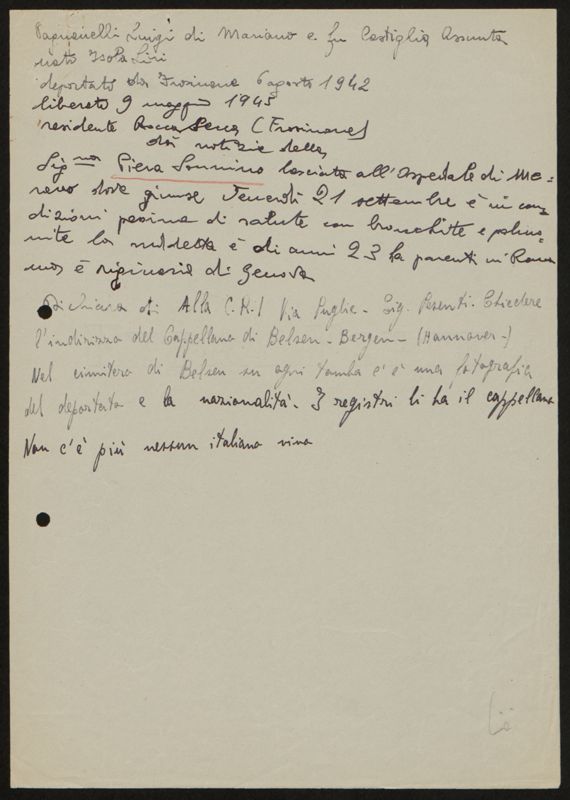 Pagnanelli Luigi di Mariano e fu Castiglia Assunta
nato Isola Liri
deportato da Frosinone 6 agosto 1942
liberato 9 maggio 1945
residente Rocca Secca (Frosinone)
dà notizie della
Sig.na Piera Sonnino lasciata all'Ospedale di Me=
rano dove giunse Venerdì 21 settembre è in con=
dizioni pessime di salute con bronchite e polmo=
nite la suddetta è di anni 23 ha parenti in Roma
ma è di Genova
Dichiara di Alla C.R.I Via Puglie - Sig. Pesenti. Chiedere
l'indirizzo del Cappellano di Belsen - Bergen - (Hannover-)
Nel cimitero di Belsen su ogni tomba c'è una fotografia
del deportato e la nazionalità. I registri li ha il cappellano
Non c'è più nessun italiano vivo